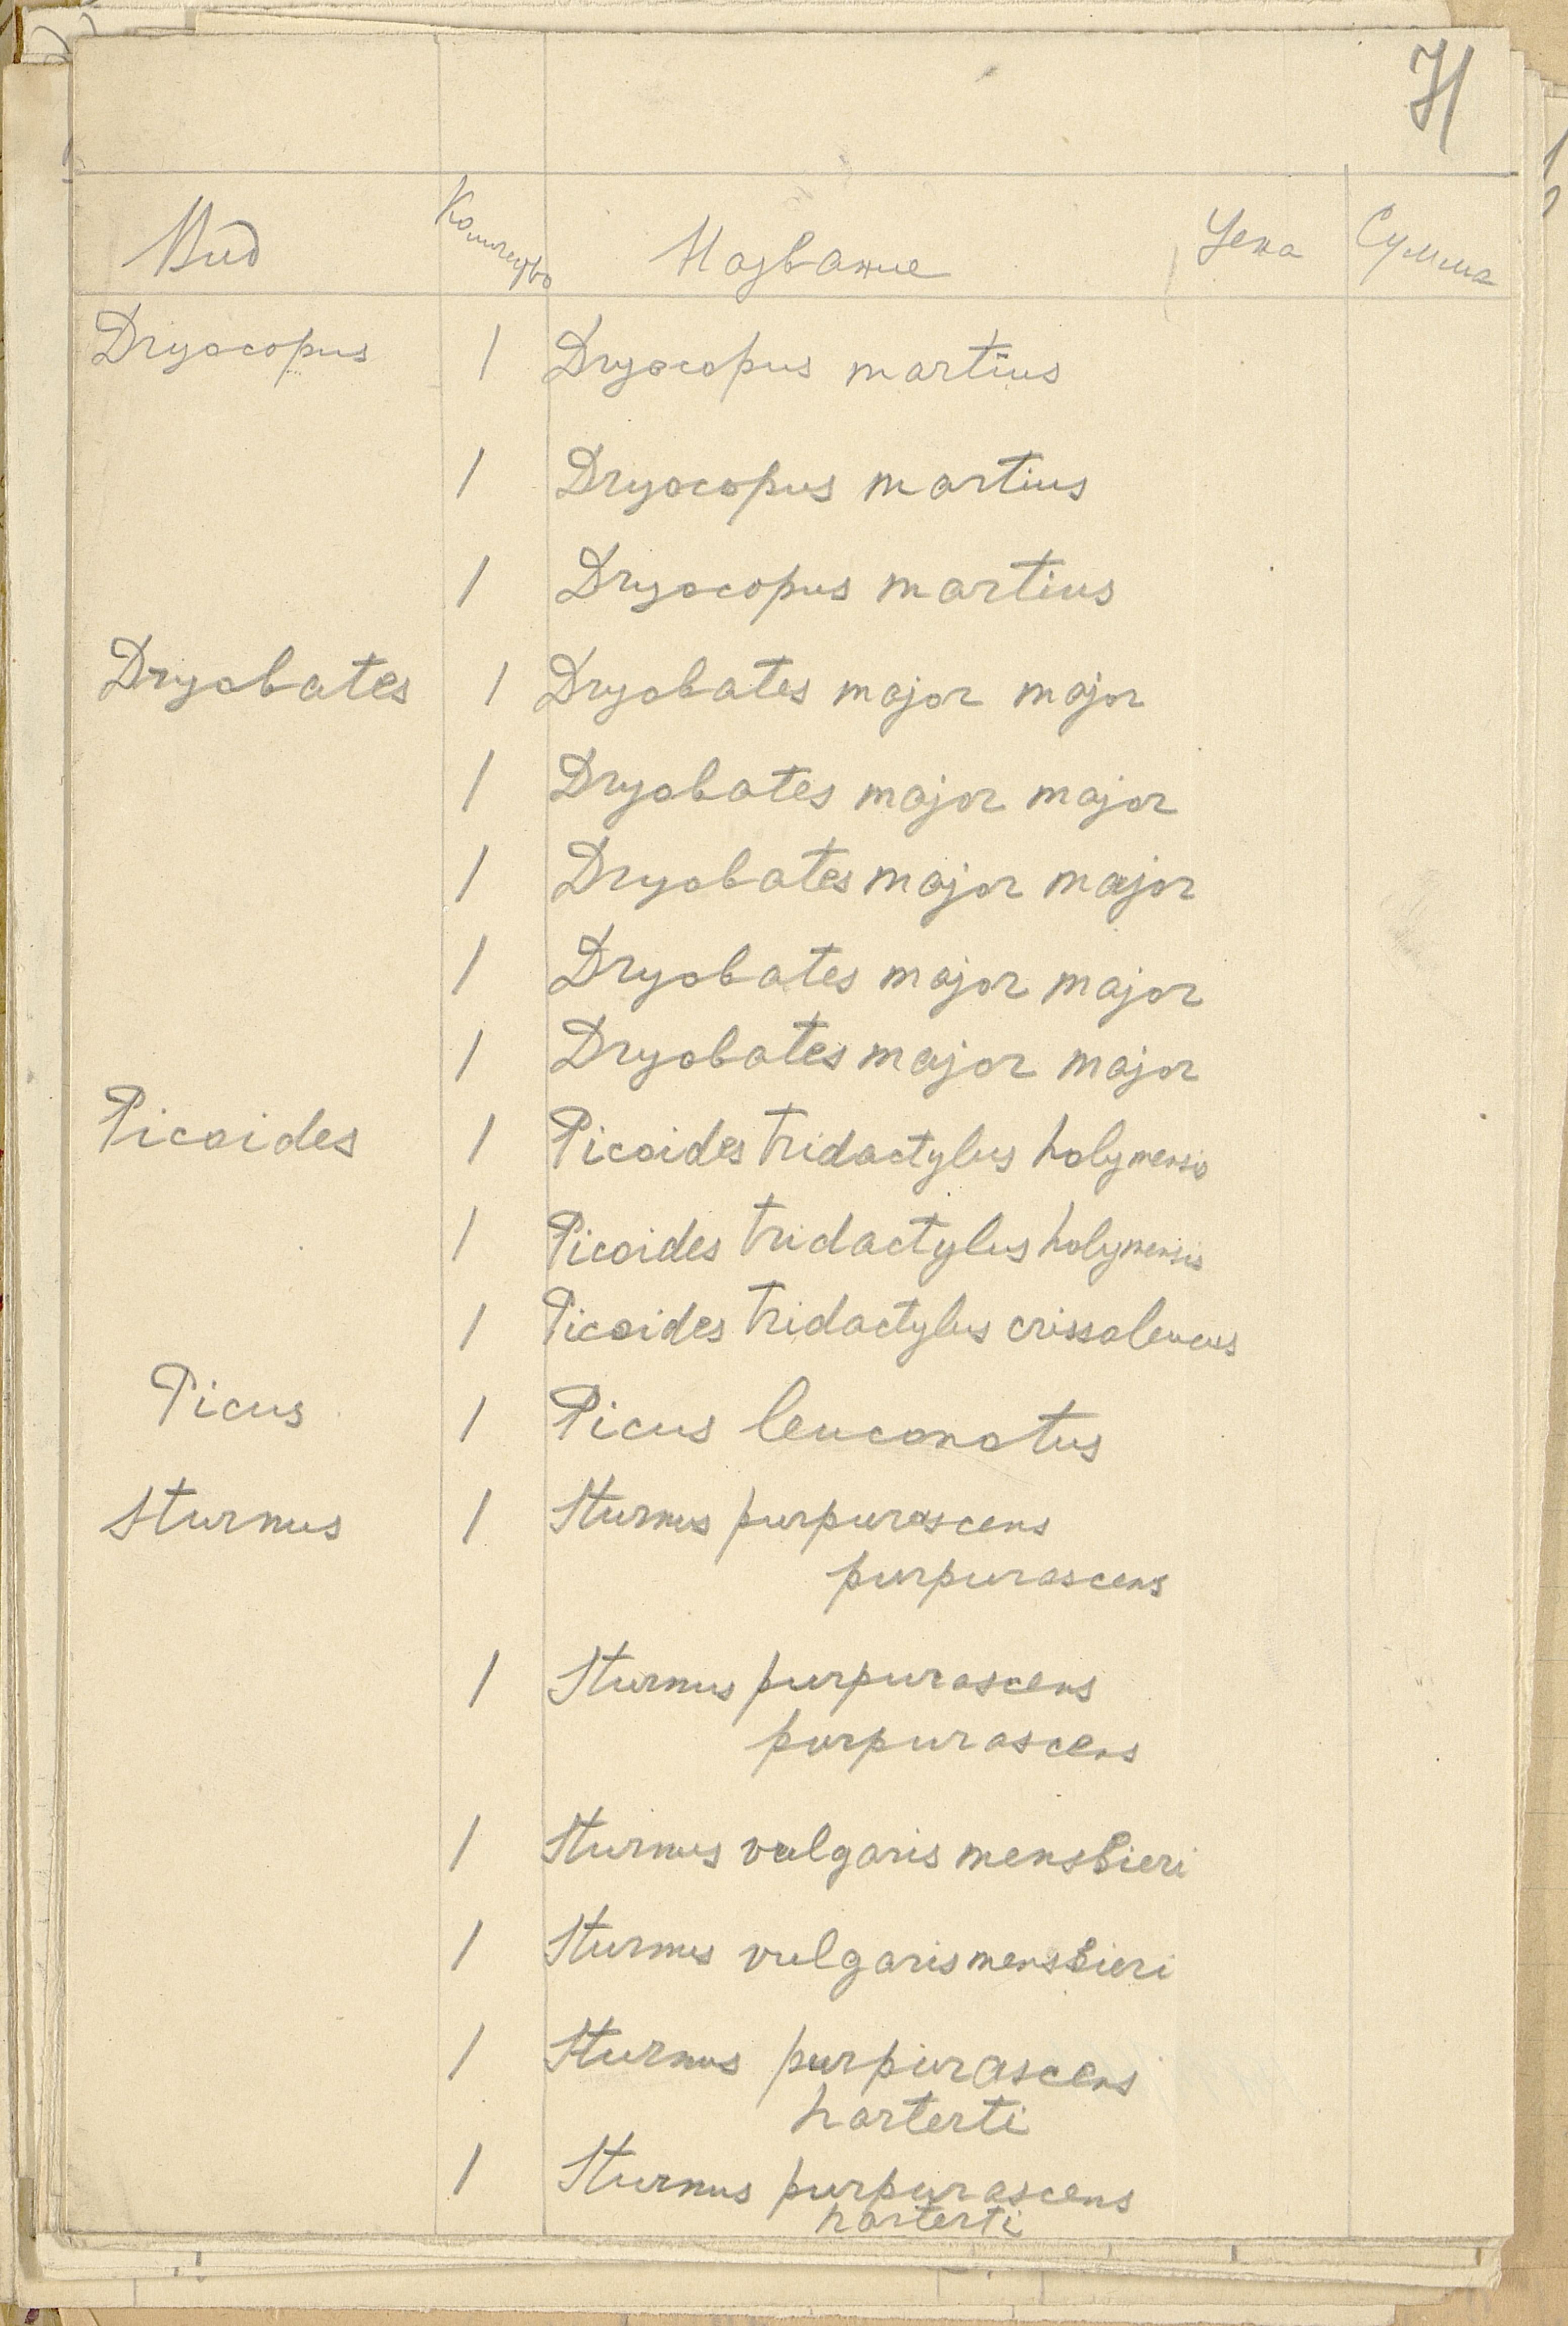 71
Вид Количество Название Цена Сумма
Dryocopus 1 Dryocopus martius
1 Dryocopus martius
1 Dryocopus martius
Dryobates 1 Dryobates major major
1 Dryobates major major
1 Dryobates major major
1 Dryobates major major
1 Dryobates major major
Picoides 1 Picoides tridactylus holymensis
1 Picoides tridactylus holymensis
1 Picoides tridactylus crissoleucus
Picus 1 Picus leuconotus
Sturnus 1 Sturnus purpurascens
purpurascens
1 Sturnus purpurascens
purpurascens
1 Sturnus vulgaris mensbieri
1 Sturnus vulgaris mensbieri
1 Sturnus purpurascens
harterti
1 Sturnus purpurascens
harterti